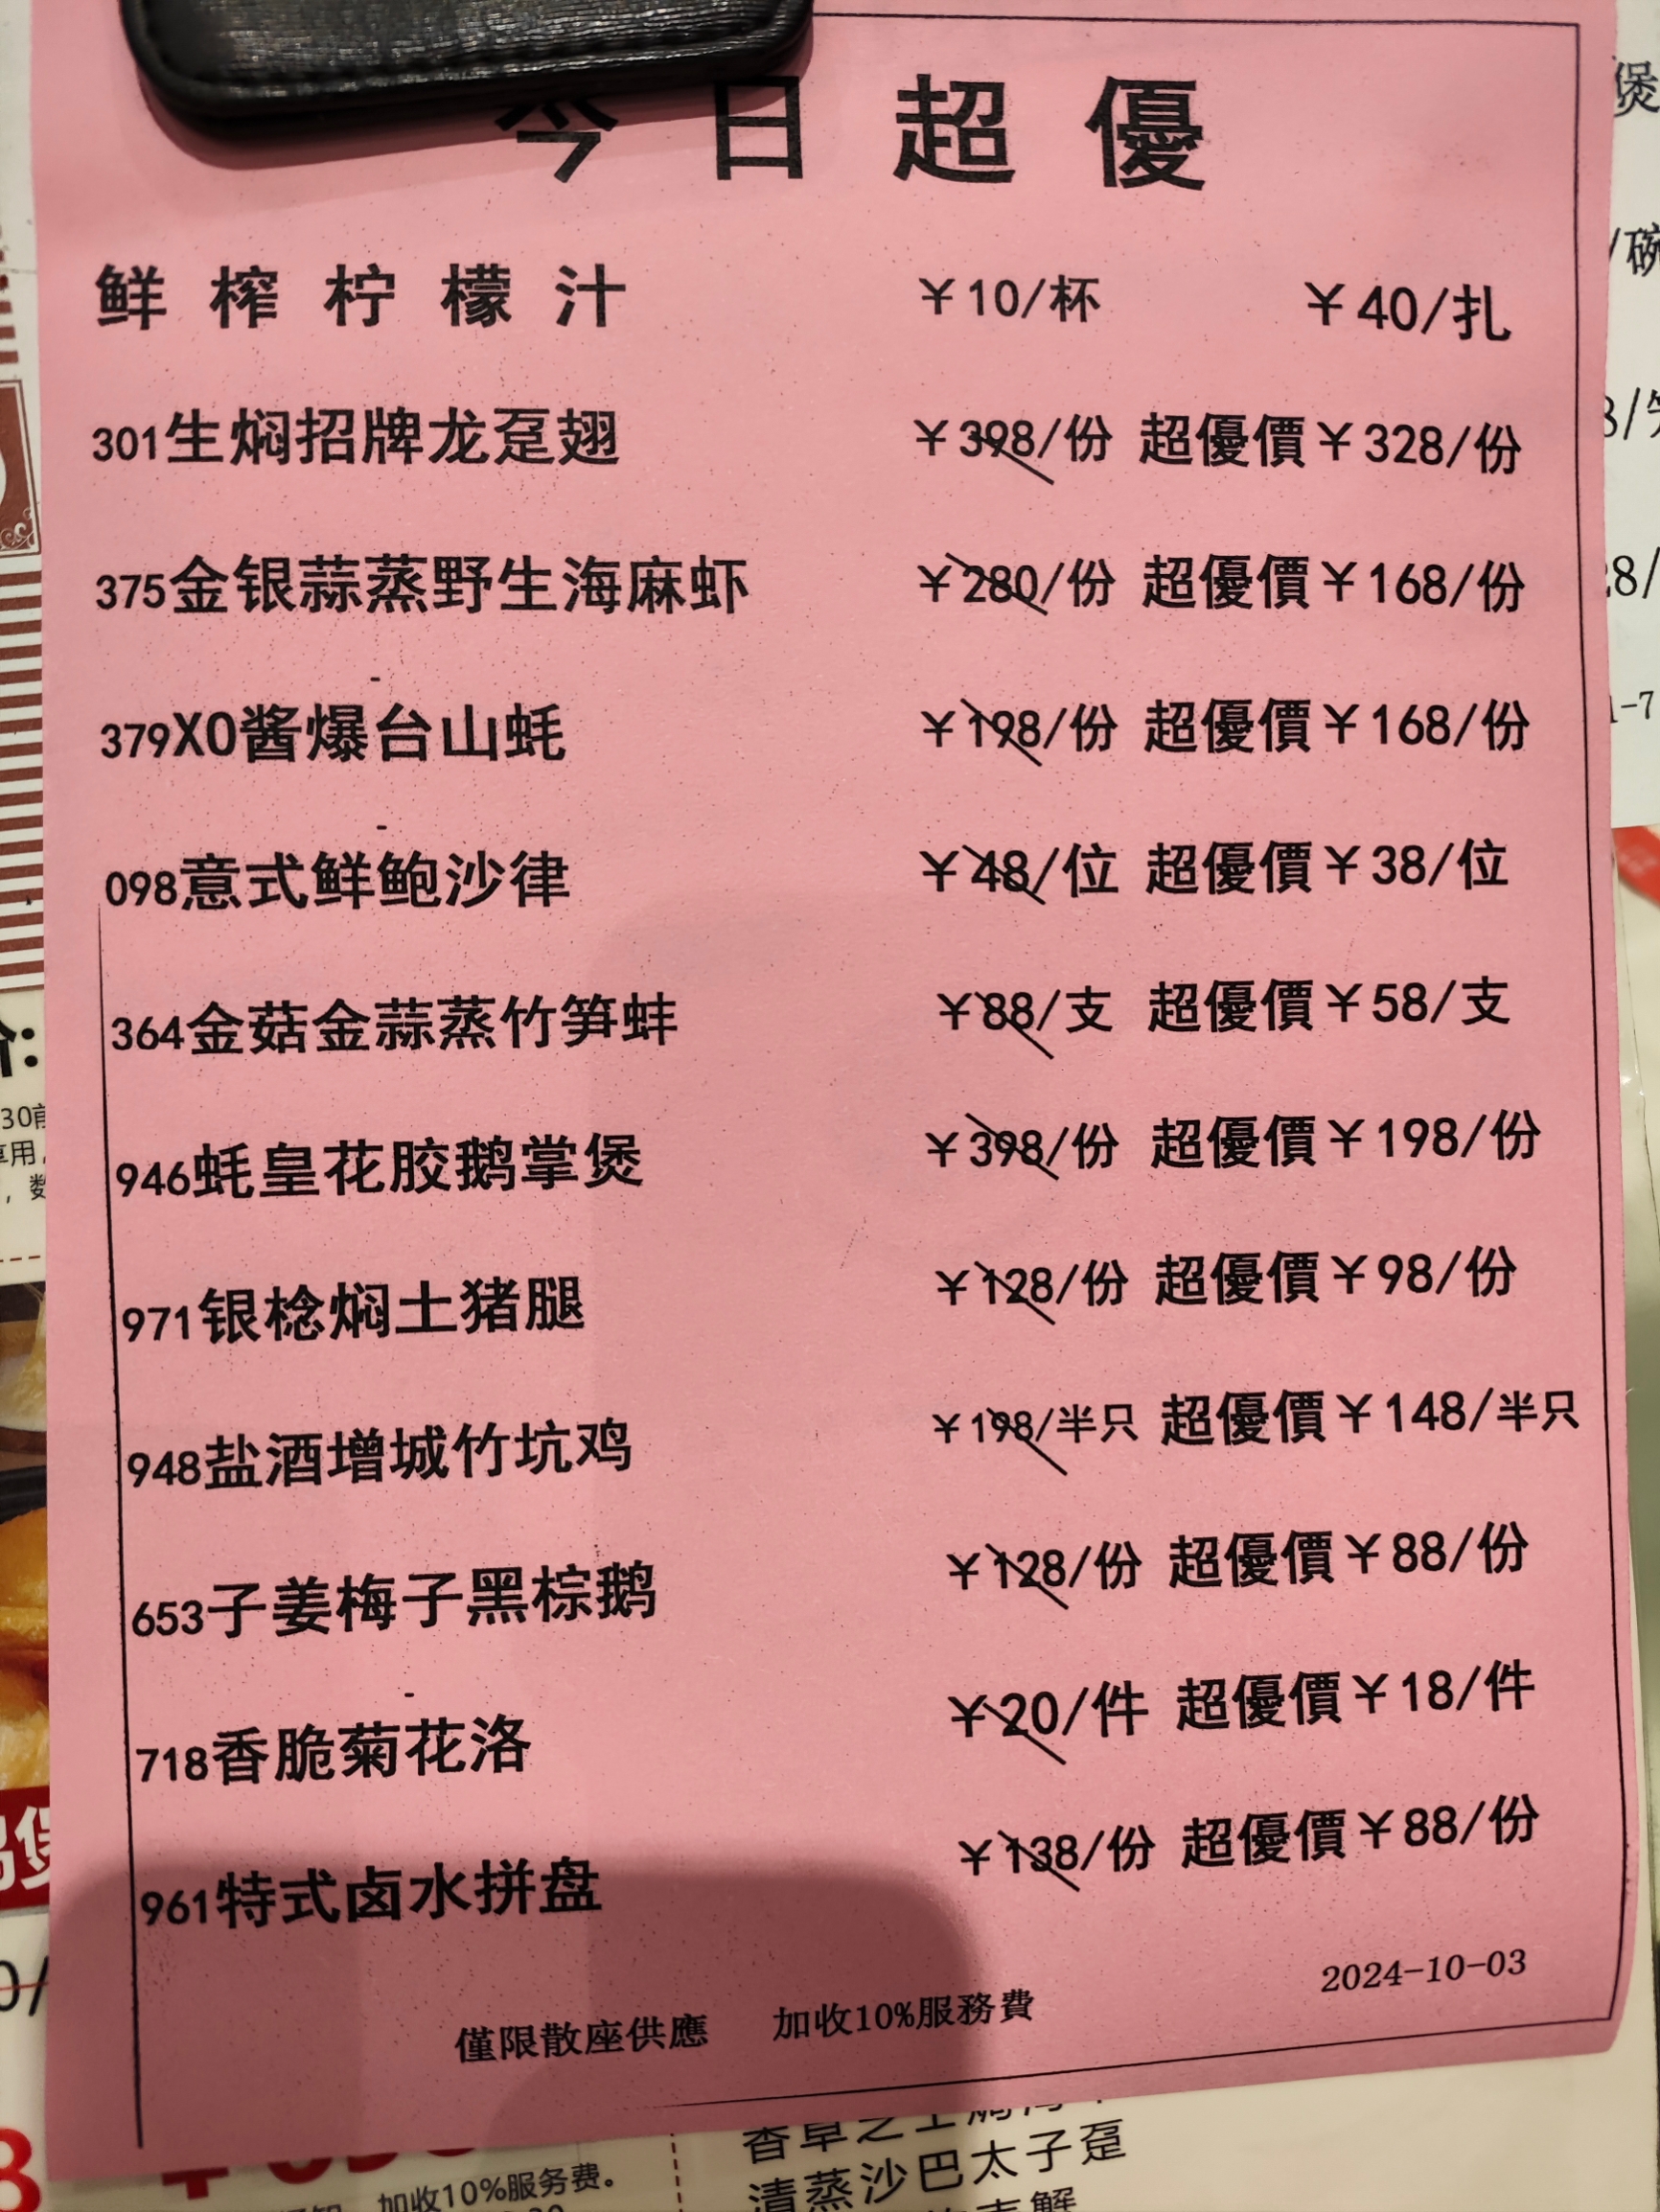 今日超優
鲜榨柠檬汁 ￥10/杯 ￥40/扎
301生焖招牌龙趸翅 ￥398/份 超優價￥328/份
375金银蒜蒸野生海麻虾 ￥280/份 超優價￥168/份
379XO酱爆台山蚝 ￥198/份 超優價￥168/份
098意式鲜鲍沙律 ￥48/位 超優價￥38/位
364金菇金蒜蒸竹笋蚌 ￥88/支 超優價￥58/支
946蚝皇花胶鹅掌煲 ￥398/份 超優價￥198/份
971银棯焖土猪腿 ￥128/份 超優價￥98/份
948盐酒增城竹坑鸡 ￥198/半只 超優價￥148/半只
653子姜梅子黑棕鹅 ￥128/份 超優價￥88/份
718香脆菊花洛 ￥20/件 超優價￥18/件
961特式卤水拼盘 ￥138/份 超優價￥88/份
2024-10-03
僅限散座供應 加收10%服務費
加收10%服务费。
清蒸沙巴太子趸
煲
/碗
30前